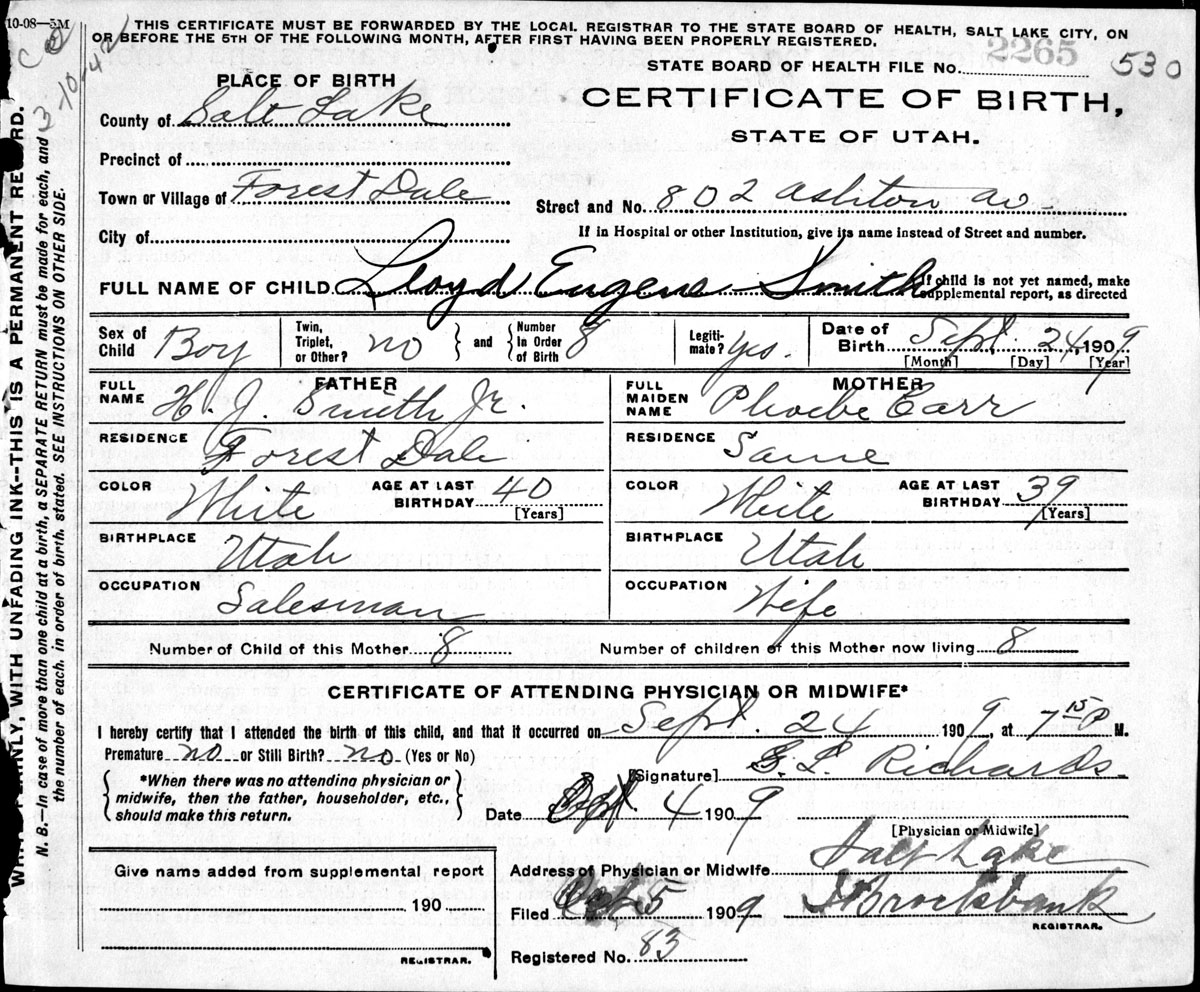 10-08—5M
THIS CERTIFICATE MUST BE FORWARDED BY THE LOCAL REGISTRAR TO THE STATE BOARD OF HEALTH, SALT LAKE CITY, ON
OR BEFORE THE 5TH OF THE FOLLOWING MONTH, AFTER FIRST HAVING BEEN PROPERLY REGISTERED.
2265
530
3-10-42
PLACE OF BIRTH
STATE BOARD OF HEALTH FILE No.
County of Salt Lake
CERTIFICATE OF BIRTH,
STATE OF UTAH.
Precinct of
Town or Village of Forest Dale
Street and No. 802 Ashton Av
City of
If in Hospital or other Institution, give its name instead of Street and number.
FULL NAME OF CHILD Lloyd Eugene Smith
If child is not yet named, make
supplemental report, as directed
Sex of Child Boy
Twin, Triplet, or Other? no
and
Number In Order of Birth 8
Legitimate? Yes.
Date of Birth Sept. 24, 1909
[Month] [Day] [Year]
FATHER
FULL NAME H. J. Smith Jr.
MOTHER
FULL MAIDEN NAME Phoebe Carr
RESIDENCE Forest Dale
RESIDENCE Same
COLOR White AGE AT LAST BIRTHDAY 40 [Years]
COLOR White AGE AT LAST BIRTHDAY 39 [Years]
BIRTHPLACE Utah
BIRTHPLACE Utah
OCCUPATION Salesman
OCCUPATION Wife
Number of Child of this Mother 8
Number of children of this Mother now living 8
CERTIFICATE OF ATTENDING PHYSICIAN OR MIDWIFE*
I hereby certify that I attended the birth of this child, and that it occurred on Sept. 24 1909, at 7 15 P M.
Premature no or Still Birth? no (Yes or No)
[Signature] G. L. Richards
*When there was no attending physician or
midwife, then the father, householder, etc.,
should make this return.
Date 4 1909
[Physician or Midwife]
Give name added from supplemental report
190
REGISTRAR.
Address of Physician or Midwife Salt Lake
Filed Oct. 5 1909
Brocksbank
REGISTRAR.
Registered No. 83
WRITE PLAINLY, WITH UNFADING INK—THIS IS A PERMANENT RECORD.
N. B.—In case of more than one child at a birth, a SEPARATE RETURN must be made for each, and
the number of each, in order of birth, stated. SEE INSTRUCTIONS ON OTHER SIDE.